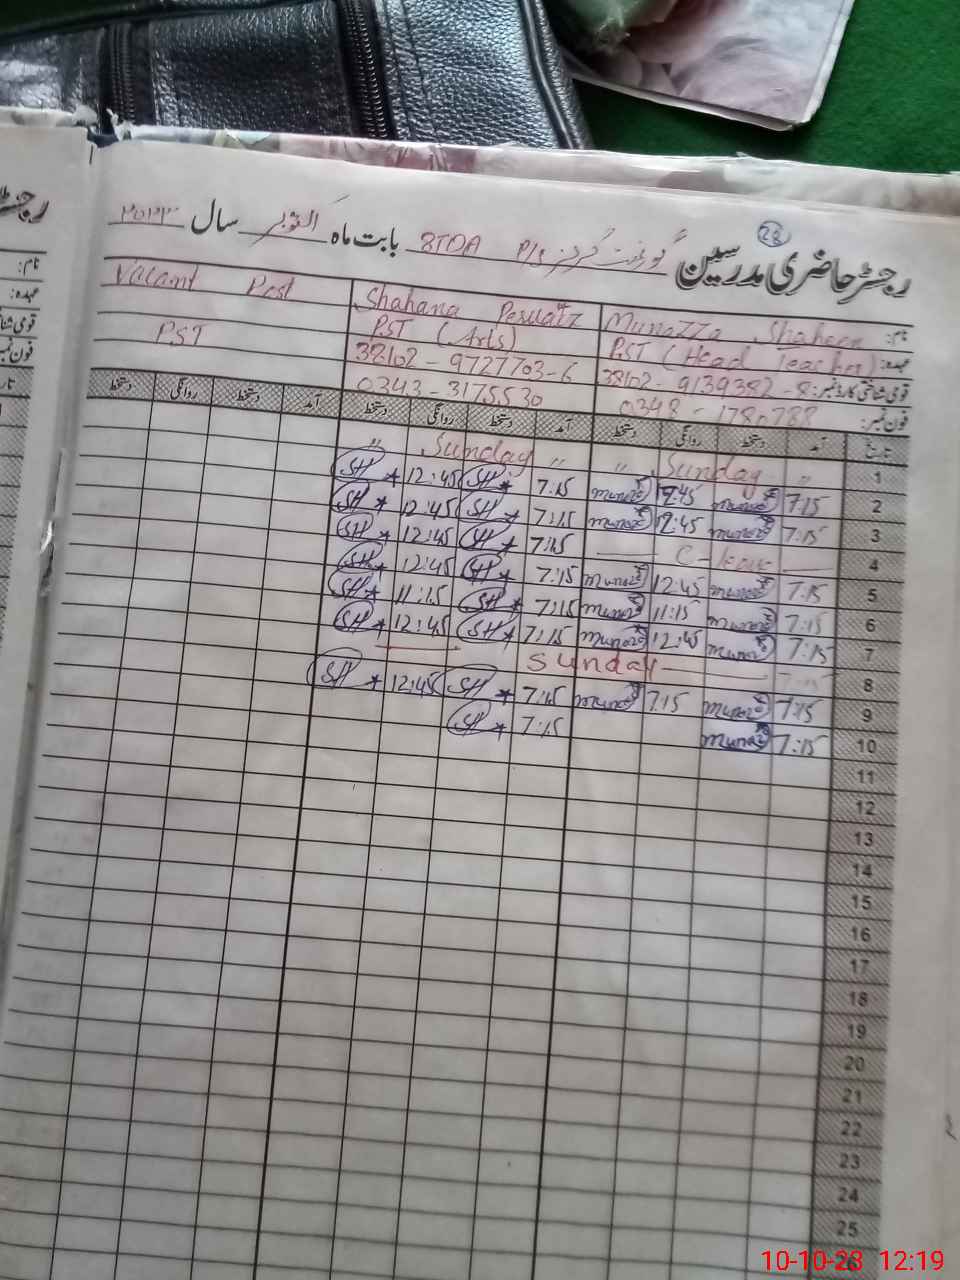 28
رجسٹر حاضری مدرسین گورنمنٹ گرلز P/S 8TDA بابت ماہ اکتوبر سال ۲۰۲۳
نام: Munazza Shaheen Shahana Perwaiz Vacant Post
عہدہ: PST (Head Teacher) PST (Arts) PST
قومی شناختی کارڈ نمبر: 38102-9139382-8 38102-9727703-6
فون نمبر: 0348-1780788 0343-3175530
تاریخ آمد دستخط روانگی دستخط آمد دستخط روانگی دستخط آمد دستخط روانگی دستخط
1 " Sunday " " Sunday "
2 7:15 Munaz 12:45 Munaz 7:15 SH 12:45 SH
3 7:15 Munaz 12:45 Munaz 7:15 SH 12:45 SH
4 C-leave 7:15 SH 12:45 SH
5 7:15 Munaz 12:45 Munaz 7:15 SH 12:45 SH
6 7:15 Munaz 11:15 Munaz 7:15 SH 11:15 SH
7 7:15 Munaz 12:45 Munaz 7:15 SH 12:45 SH
8 Sunday
9 7:15 Munaz 7:15 Munaz 7:15 SH 12:45 SH
10 7:15 Munaz 7:15 SH
11
12
13
14
15
16
17
18
19
20
21
22
23
24
25
26
10-10-23 12:19